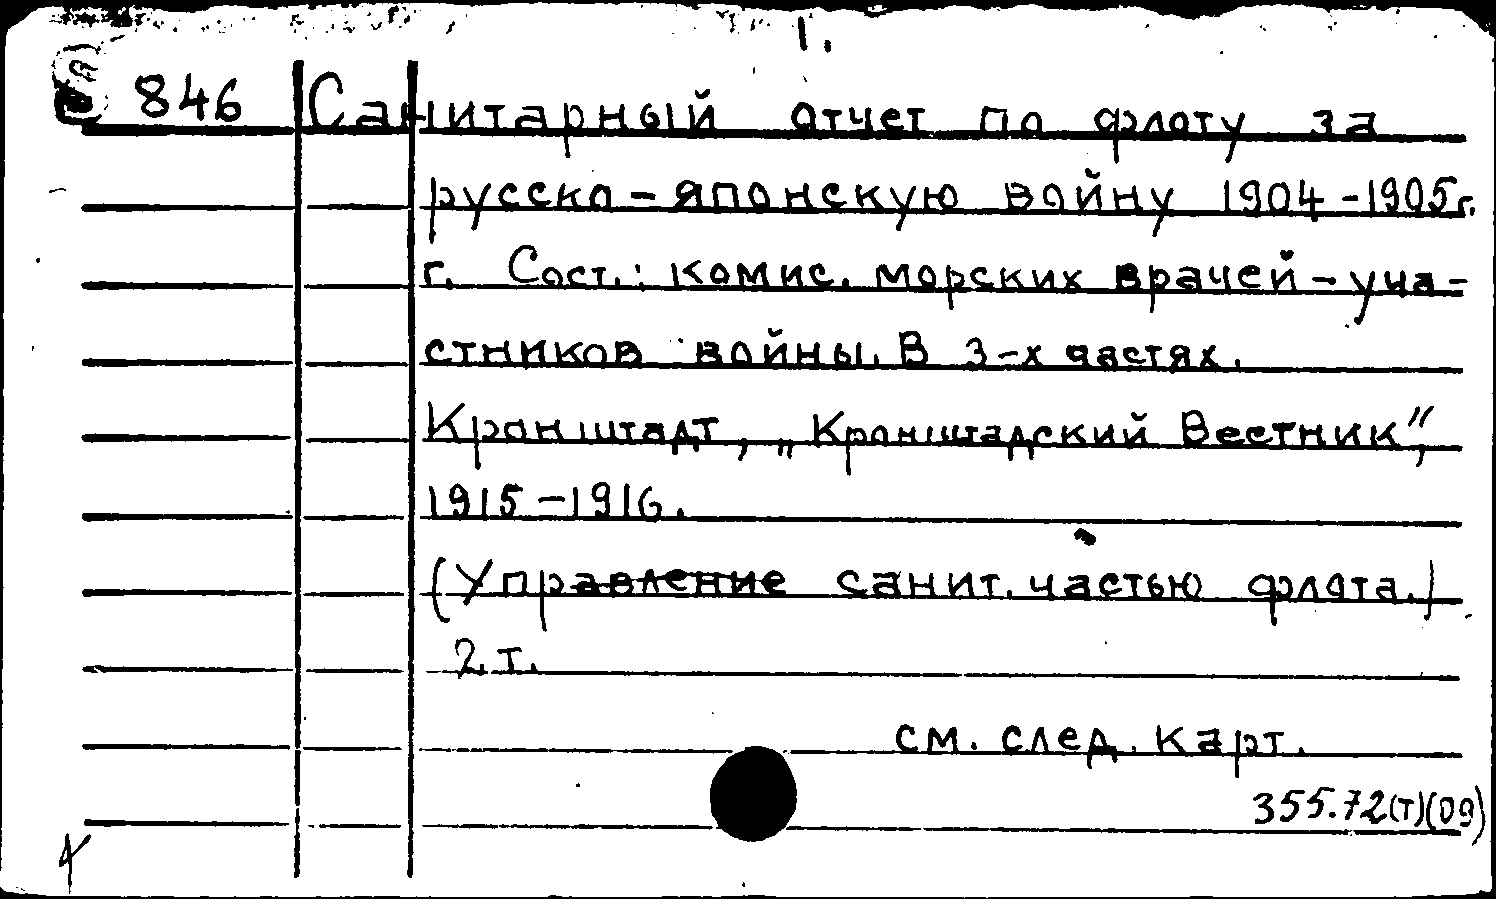 1.
846 Санитарный отчет по флоту за
русско-японскую войну 1904-1905г.
г. Сост.: комис. морских врачей-уча-
стников войны. В 3-х частях.
Кронштадт, „Кронштадский Вестник",
1915-1916.
(Управление санит. частью флота.)
2 т.
см. след. карт.
355.72(т)(09)